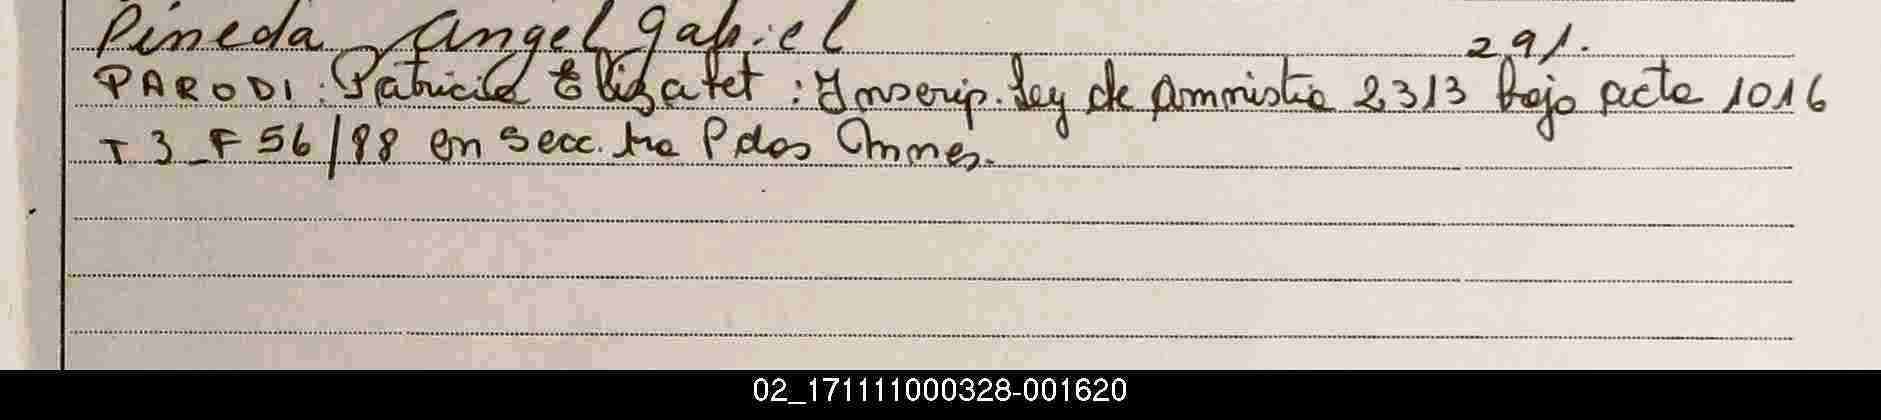 Pineda Angel Gabriel 291.
PARODI: Patricia Elizabet: Inscrip. Ley de Amnistia 2313 bajo acta 1016
T 3 _ F 56/88 en Secc. 1ra P dos
02_171111000328-001620